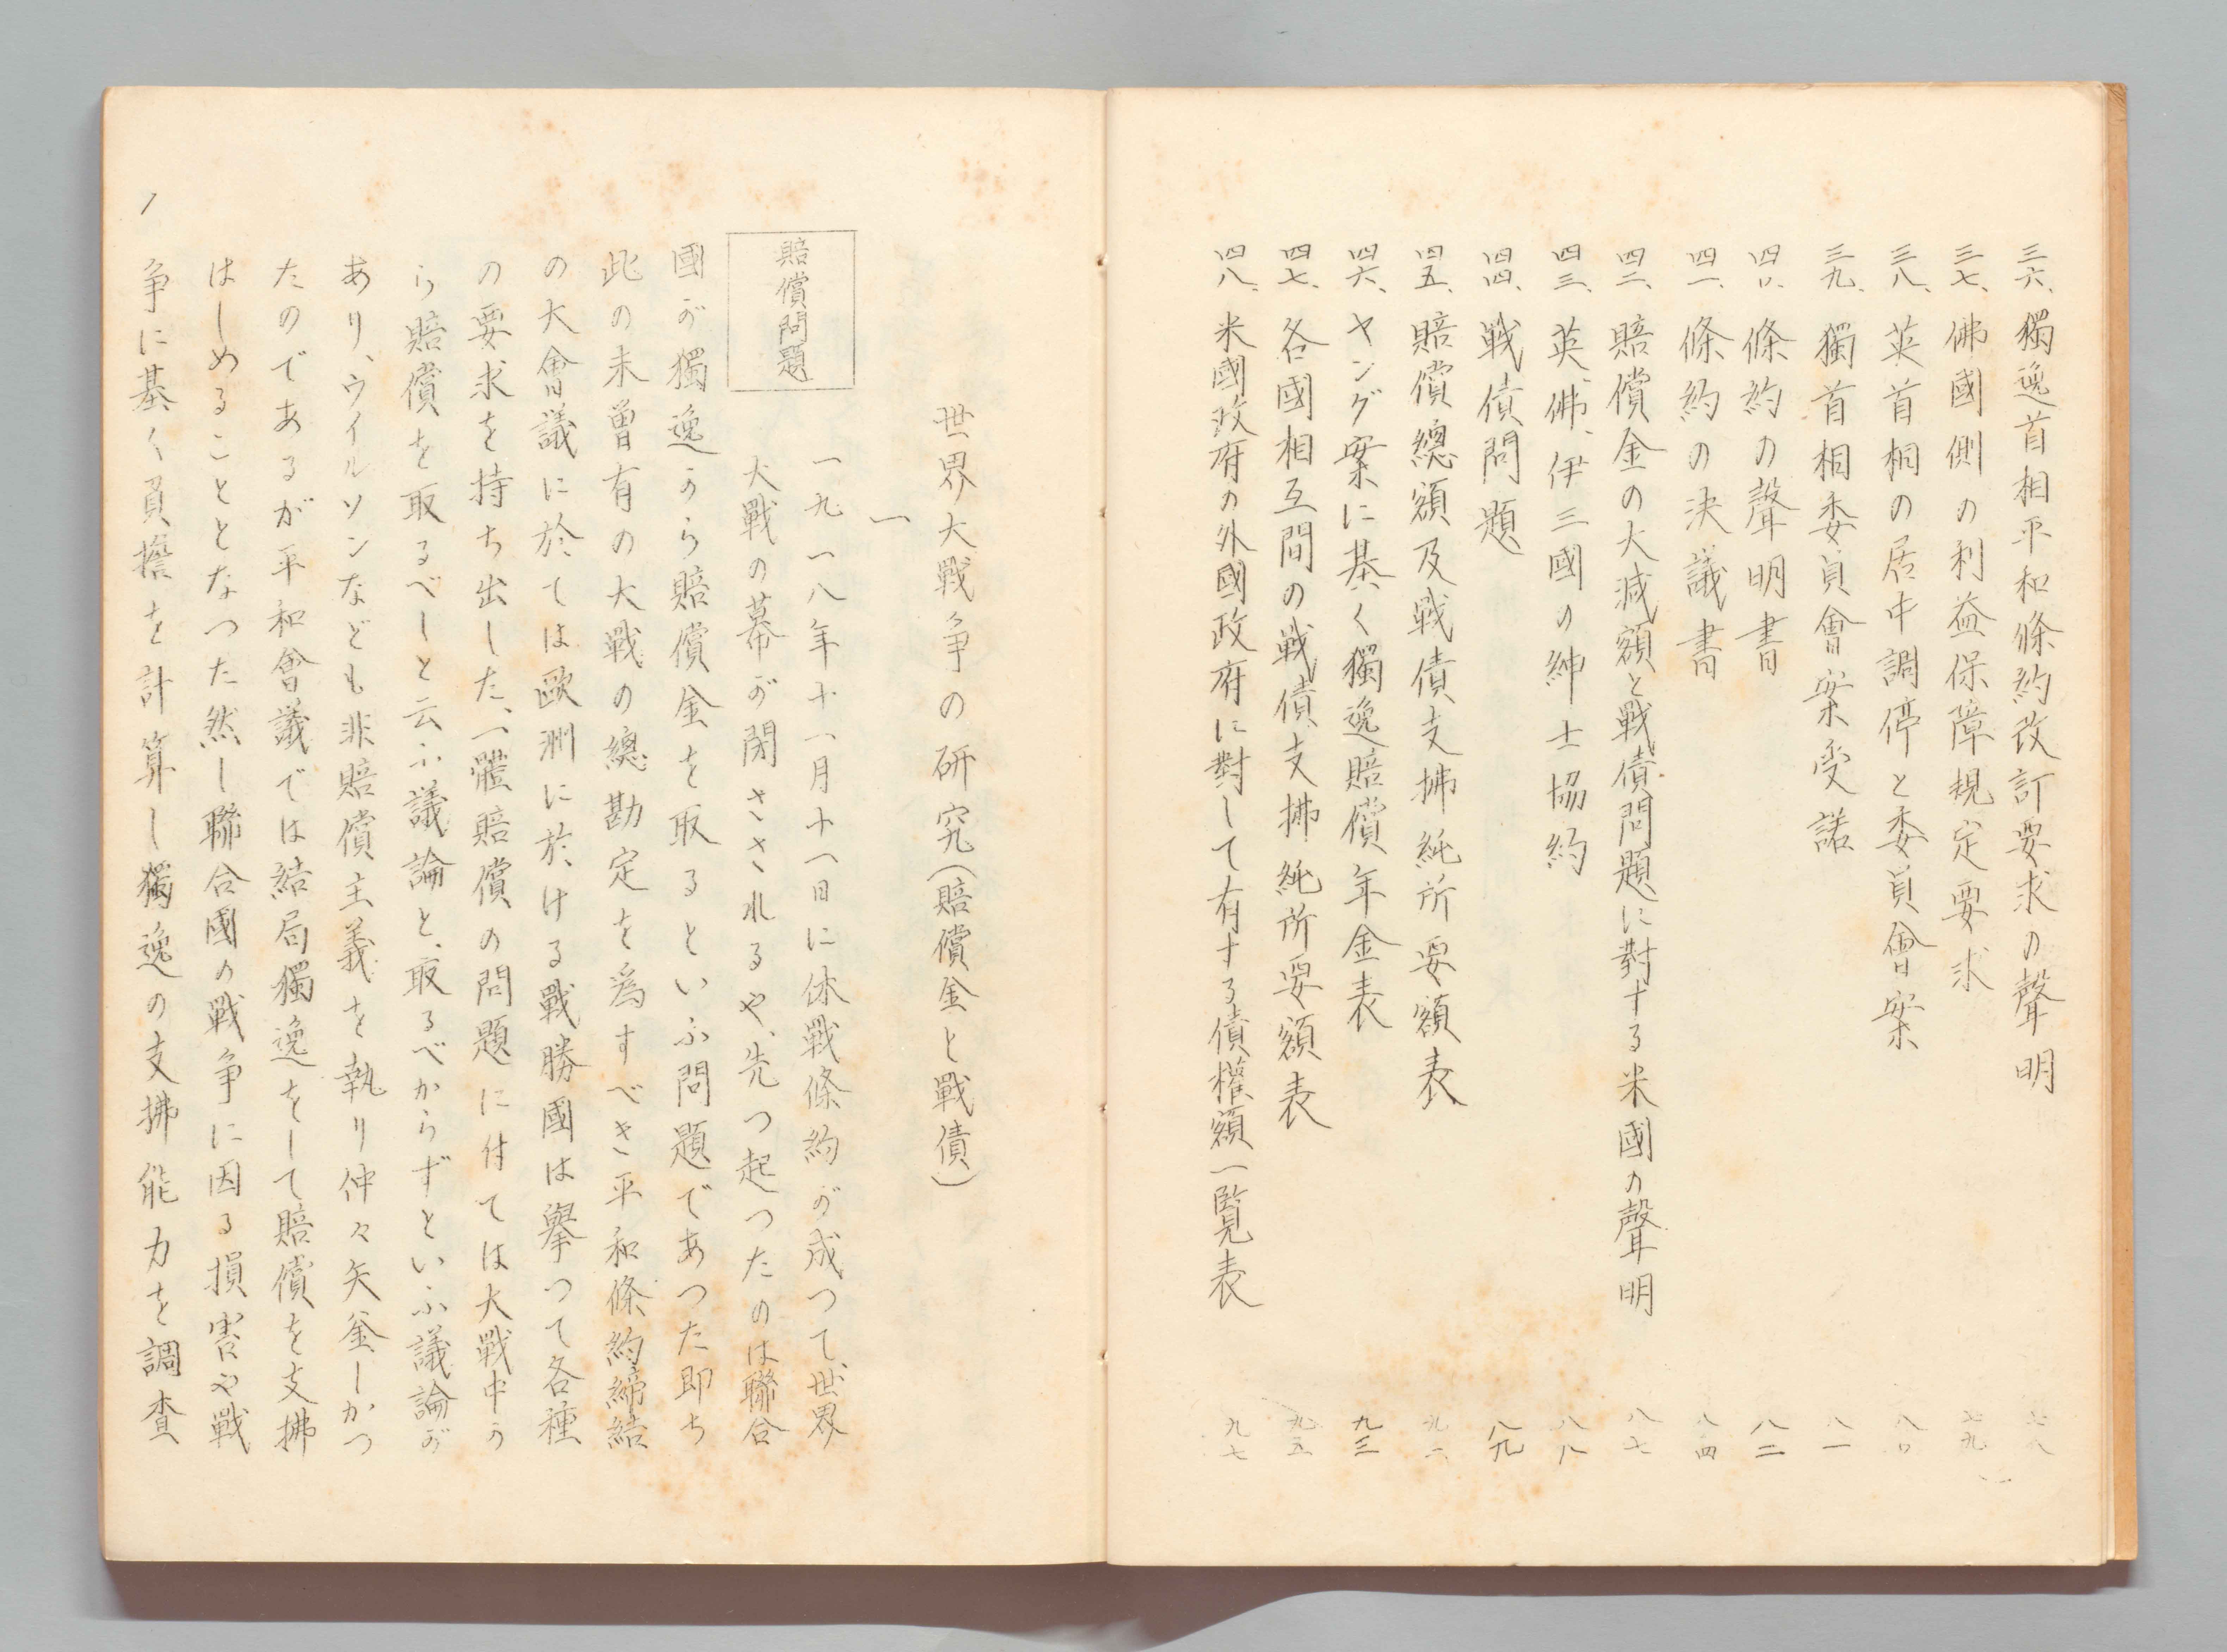 三六、獨逸首相平和條約改訂要求の聲明 七八
三七、佛國側の利益保障規定要求 七九
三八、英首相の居中調停と委員會案 八〇
三九、獨首相委員會案受諾 八一
四〇、條約の聲明書 八二
四一、條約の決議書 八四
四二、賠償金の大減額と戰債問題に對する米國の聲明 八七
四三、英、佛、伊三國の紳士協約 八八
四四、戰債問題 八九
四五、賠償總額及戰債支拂純所要額表 九二
四六、ヤング案に基く獨逸賠償年金表 九三
四七、各國相互間の戰債支拂純所要額表 九五
四八、米國政府の外國政府に對して有する債權額一覽表 九七
世界大戰争の研究(賠償金と戰債)
一
賠償問題
一九一八年十一月十一日に休戰條約が成つて、世界
大戰の幕が閉さされるや、先つ起つたのは聯合
國が獨逸から賠償金を取るといふ問題であつた即ち
此の未曽有の大戰の總勘定を爲すべき平和條約締結
の大會議に於ては歐洲に於ける戰勝國は擧つて各種
の要求を持ち出した、一體賠償の問題に付ては大戰中か
ら賠償を取るべしと云ふ議論と、取るべからずといふ議論が
あり、ウイルソンなども非賠償主義を執り仲々矢釜しかつ
たのであるが平和會議では結局獨逸をして賠償を支拂
はしめることとなつた然し聯合國の戰争に因る損害や戰
争に基く負擔を計算し獨逸の支拂能力を調査
1